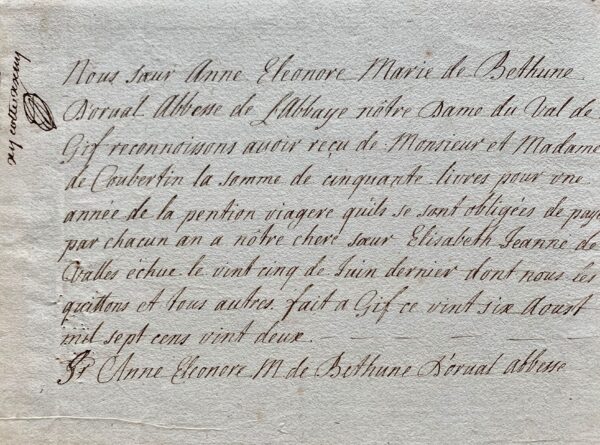 Nous sœur Anne Eleonore Marie de Bethune
Dorual Abbesse de L'Abbaye nôtre Dame du Val de
Gif reconnoissons avoir reçu de Monsieur et Madame
de Coubertin la somme de cinquante livres pour vne
année de la pention viagere qu'ils se sont obligées de paye
par chacun an a nôtre chere sœur Elisabeth Jeanne de
Valles échue le vint cinq de Juin dernier dont nous les
quittons et tous autres. fait a Gif ce vint six Aoust
mil sept cens vint deux.
Sr Anne Eleonore M de Bethune D'orual abbesse